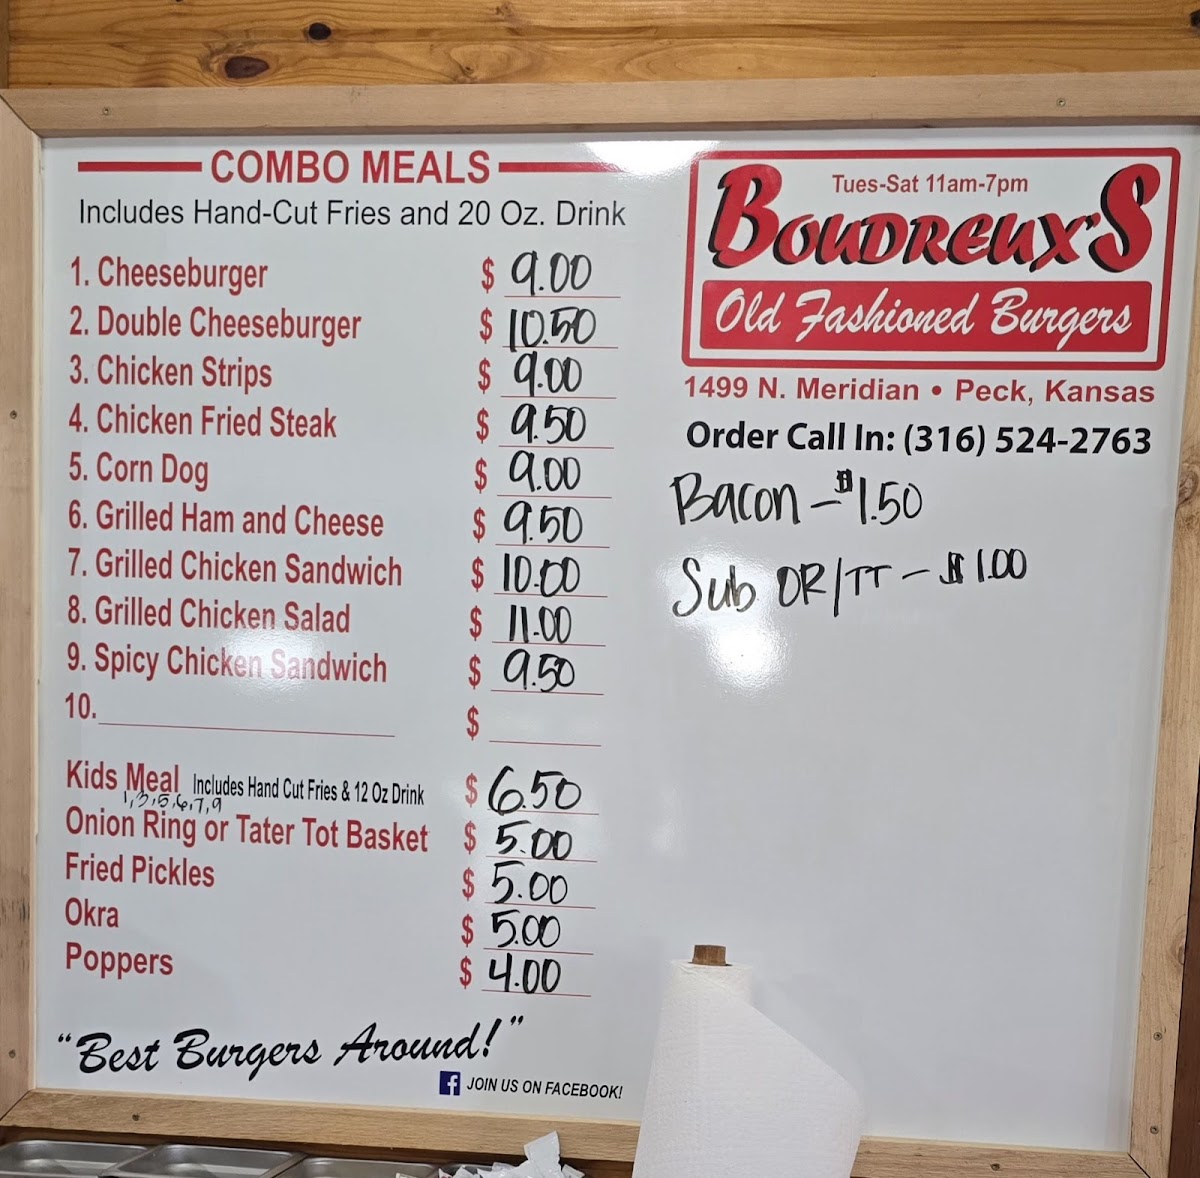 COMBO MEALS
Includes Hand-Cut Fries and 20 Oz. Drink
1. Cheeseburger $ 9.00
2. Double Cheeseburger $ 10.50
3. Chicken Strips $ 9.00
4. Chicken Fried Steak $ 9.50
5. Corn Dog $ 9.00
6. Grilled Ham and Cheese $ 9.50
7. Grilled Chicken Sandwich $ 10.00
8. Grilled Chicken Salad $ 11.00
9. Spicy Chicken Sandwich $ 9.50
10. $
Kids Meal Includes Hand Cut Fries & 12 Oz Drink $ 6.50
1,3,5,6,7,9
Onion Ring or Tater Tot Basket $ 5.00
Fried Pickles $ 5.00
Okra $ 5.00
Poppers $ 4.00
"Best Burgers Around!"
f JOIN US ON FACEBOOK!
Tues-Sat 11am-7pm
BOUDREUX'S
Old Fashioned Burgers
1499 N. Meridian • Peck, Kansas
Order Call In: (316) 524-2763
Bacon - $1.50
Sub OR/TT - $1.00